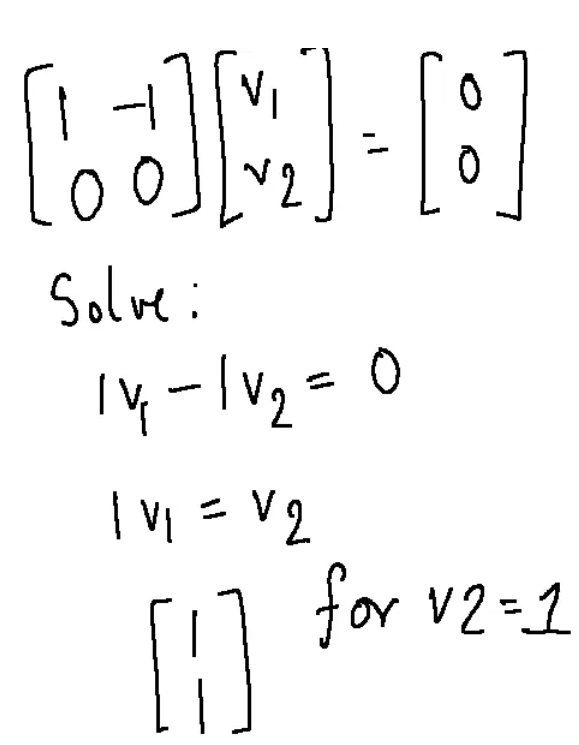 [1 -1] [v1] = [0]
[0 0] [v2] [0]
Solve:
1v1 - 1v2 = 0
1v1 = v2
[1 for v2=1
1]